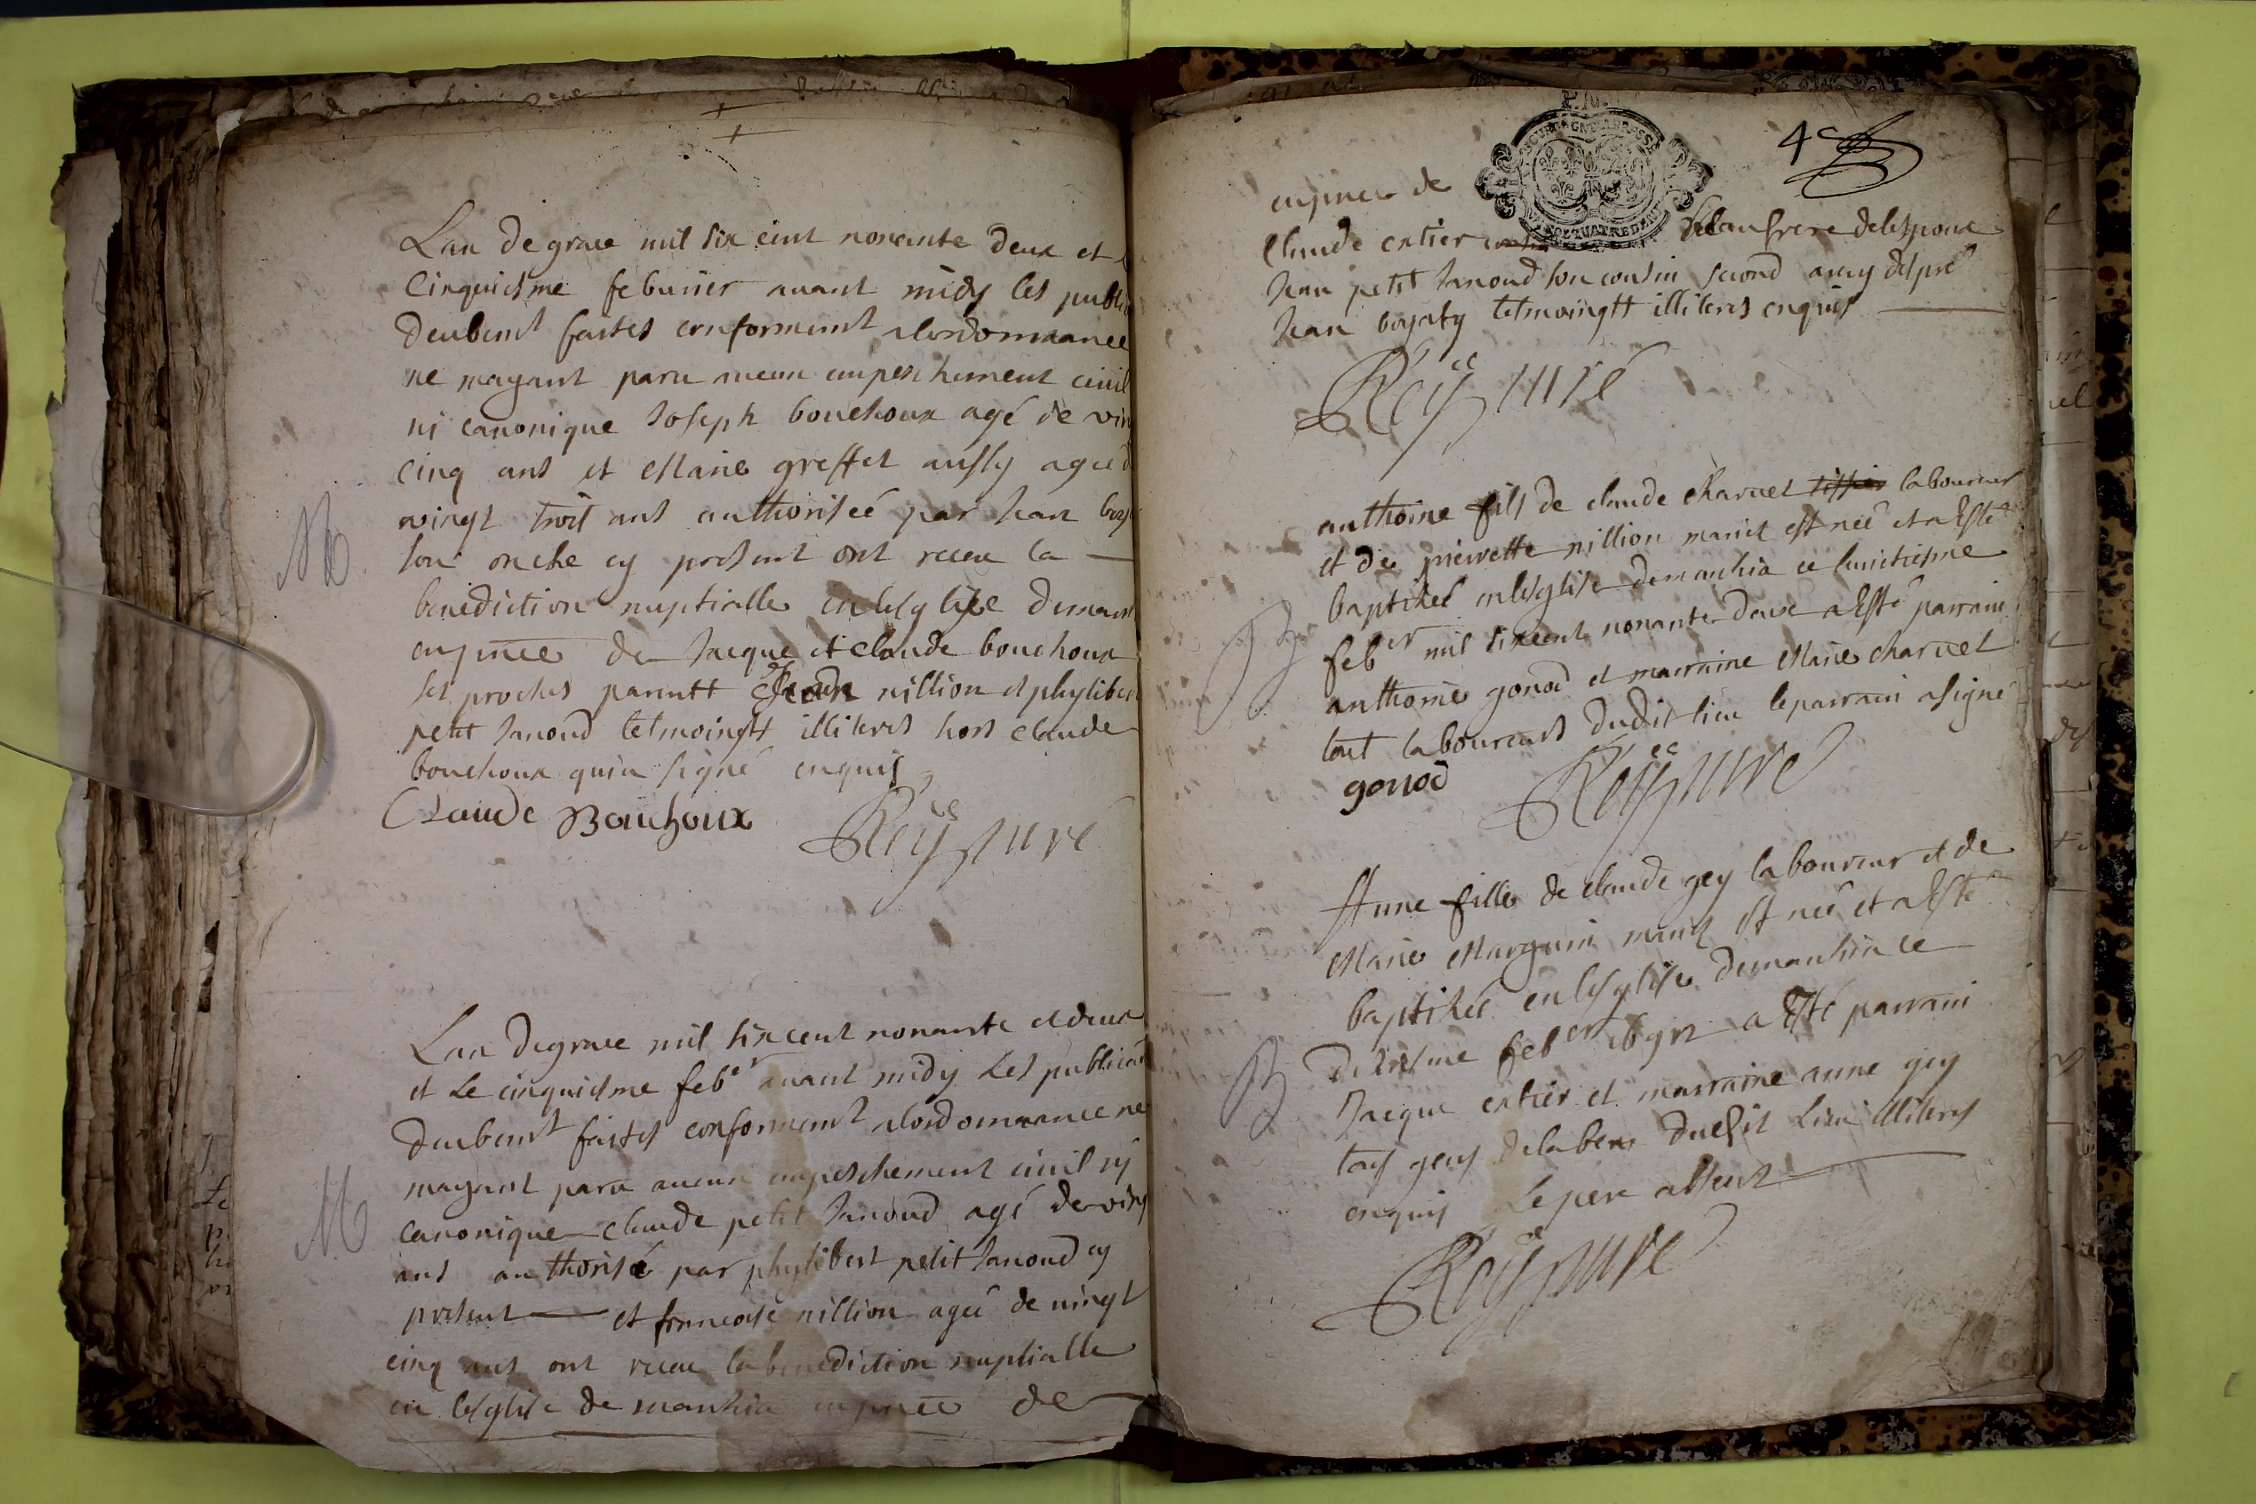 Lan de grace mil six cent nonante deux et
cinquiesme feburier auant midy les public
deubemt faites conformemt alordonnance
ne mayant paru aucun empeschement ciuil
ni canonique Joseph bouchoux agé de vin
cinq ans et Marie greffet aussy agée d
vingt trois ans authorisée par Jean boy
son oncle cy present ont receu la
benediction nuptialle en lesglise demanz
en pnce de Jacque et claude bouchoux
ses proches parentt Jean nillion et phylibe
petit Janoud tesmoingtt illiteres hors claude
bouchoux qui a signé enquis
Claude Bouchoux Reÿ curé
Lan degrace mil six cent nonante et deux
et Le cinquiesme feber auant midy Les publica
deubemt faites conformemt alordonnance ne
mayant paru aucun empeschement ciuil ny
canonique claude petit Janoud agé de ving
ans authorisé par phylibert petit Janoud cy
present et francoise nillion agée de uingt
cinq ans ont receu la benediction nuptialle
en lesglise de manzia en pnce de
4e
en pnce de
Claude catier frere delespouse
Jean petit Janoud son cousin second
Jean boyaty tesmoingtt illiteres enquis
Reÿ curé
M
anthoine fils de claude charuet tissier laboureur
et de pierrette nillion mariés est neé et a Esté
baptiseé en lesglise demanzia ce huictiesme
feber mil six cent nonante deux a Esté parrain
anthoine gonod et marraine Marie charuet
tout laboureurs dudit lieu le parrain a signé
gonod Reÿ curé
B
Anne fille de claude gey laboureur et de
Marie Marguin mariés est neé et a Esté
baptiseé en lesglise demanzia ce
dixiesme feber 1692 a Esté parrain
Jacque catier et marraine anne gey
tous gens delabeur dudit Lieu illiteres
enquis Le pere absent
Reÿ curé
B
M